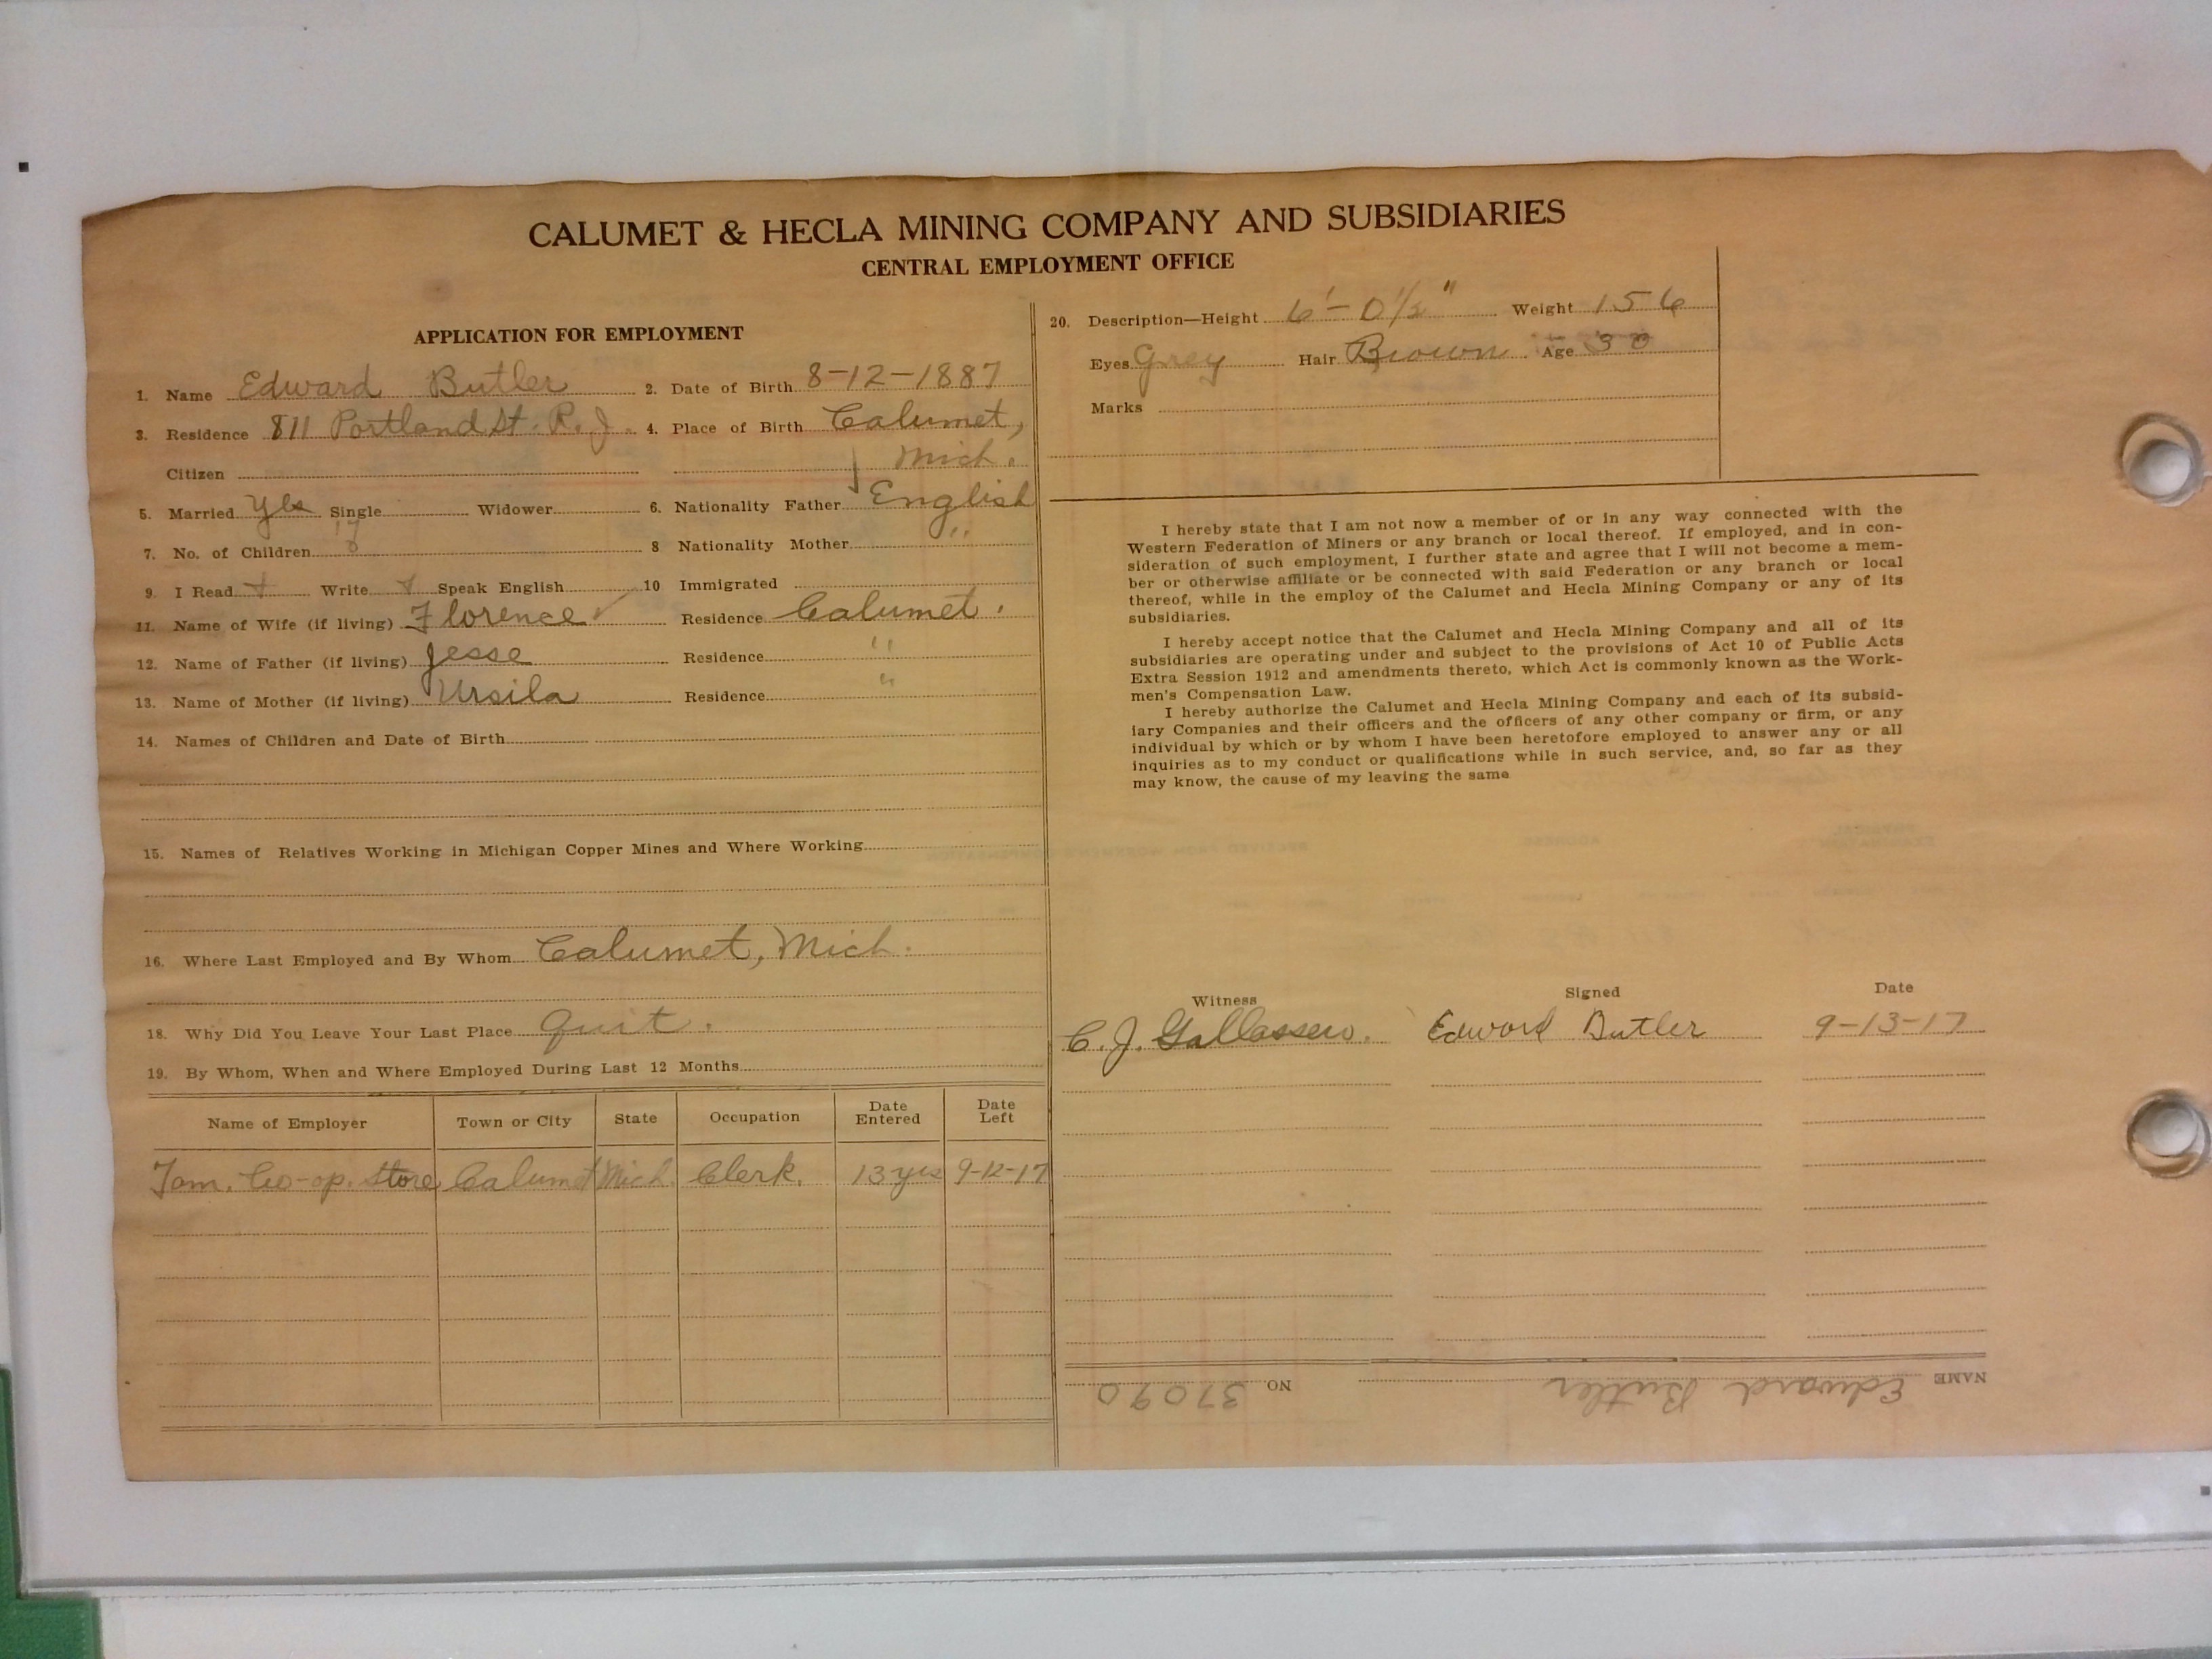 CALUMET & HECLA MINING COMPANY AND SUBSIDIARIES
CENTRAL EMPLOYMENT OFFICE
APPLICATION FOR EMPLOYMENT
1. Name Edward Butler 2. Date of Birth 8-12-1887
3. Residence 811 Portland St. R.J. 4. Place of Birth Calumet,
Citizen Mich.
5. Married Yes Single Widower 6. Nationality Father English
7. No. of Children 8 Nationality Mother "
9. I Read Write Speak English 10 Immigrated
11. Name of Wife (if living) Florence Residence Calumet.
12. Name of Father (if living) Jesse Residence "
13. Name of Mother (if living) Ursila Residence "
14. Names of Children and Date of Birth
15. Names of Relatives Working in Michigan Copper Mines and Where Working
16. Where Last Employed and By Whom Calumet, Mich.
18. Why Did You Leave Your Last Place Quit.
19. By Whom, When and Where Employed During Last 12 Months
Name of Employer Town or City State Occupation Date Entered Date Left
Tam. Co-op. Store Calumet Mich. Clerk. 13 yrs 9-12-17
20. Description—Height 6'-0 1/2" Weight 156
Eyes Grey Hair Brown Age 30
Marks
I hereby state that I am not now a member of or in any way connected with the
Western Federation of Miners or any branch or local thereof. If employed, and in con-
sideration of such employment, I further state and agree that I will not become a mem-
ber or otherwise affiliate or be connected with said Federation or any branch or local
thereof, while in the employ of the Calumet and Hecla Mining Company or any of its
subsidiaries.
I hereby accept notice that the Calumet and Hecla Mining Company and all of its
subsidiaries are operating under and subject to the provisions of Act 10 of Public Acts
Extra Session 1912 and amendments thereto, which Act is commonly known as the Work-
men's Compensation Law.
I hereby authorize the Calumet and Hecla Mining Company and each of its subsid-
iary Companies and their officers and the officers of any other company or firm, or any
individual by which or by whom I have been heretofore employed to answer any or all
inquiries as to my conduct or qualifications while in such service, and, so far as they
may know, the cause of my leaving the same
Witness Signed Date
C. J. Edward Butler 9-13-17
NAME Edward Butler NO. 37090